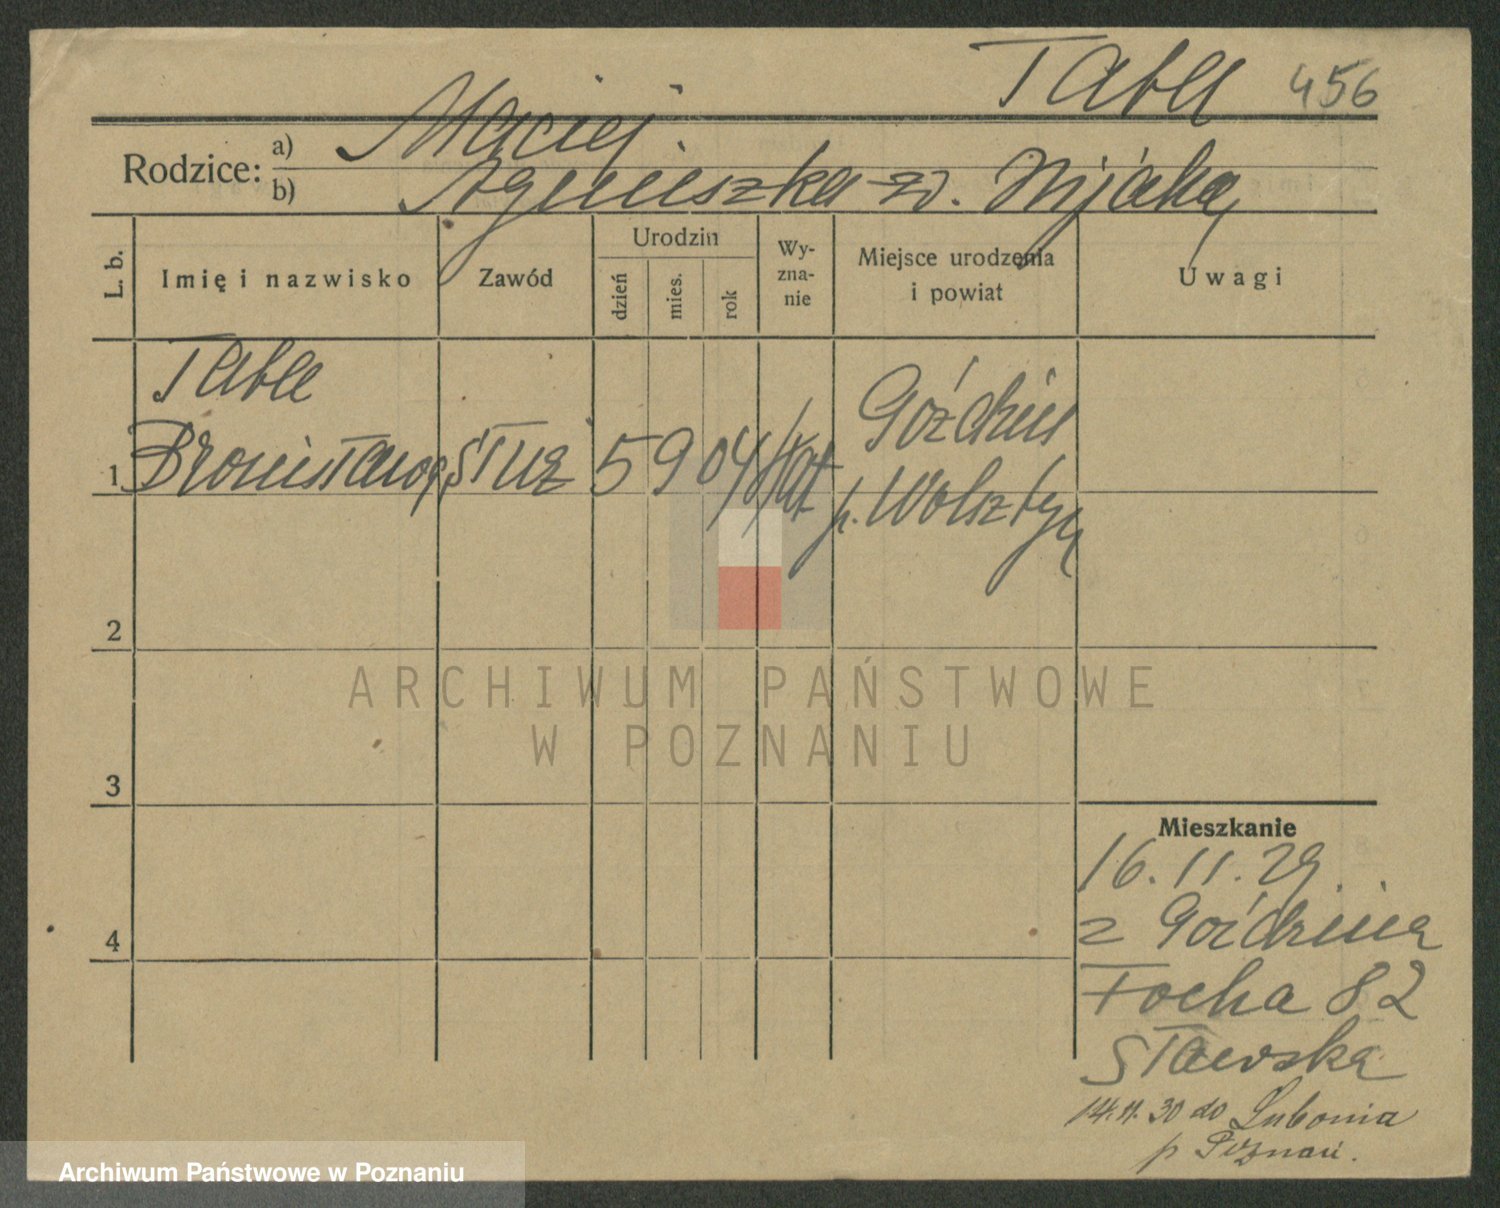 Tabla 456
Rodzice: a) Maciej
b) Agnieszka z d.
L. b.
Imię i nazwisko
Zawód
Urodzin
dzień
mies.
rok
Wy-
zna-
nie
Miejsce urodzenia
i powiat
Uwagi
Tabla
1 Bronisława służ 5 9 04 kat
Goździn
p. Wolsztyn
2
3
4
Mieszkanie
16.11.29.
z Goździna
Focha 82
Stawska
14.11.30 do Lubonia
p Poznań.
ARCHIWUM PAŃSTWOWE
W POZNANIU
Archiwum Państwowe w Poznaniu